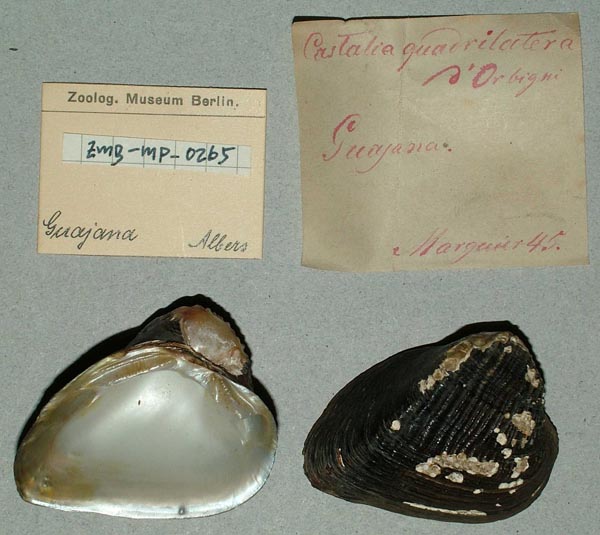 Zoolog. Museum Berlin.
ZMB-MP-0265
Guajana
Albers
Castalia quadrilatera
d'Orbigni
Guajana.
Marquier 45.